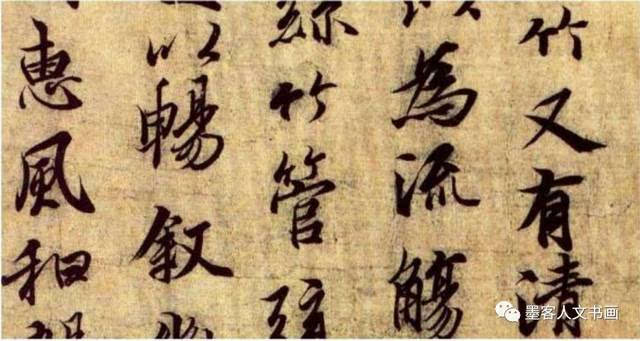 竹又有清
以為流觴
絲竹管弦
以暢叙幽
惠風和
墨客人文书画